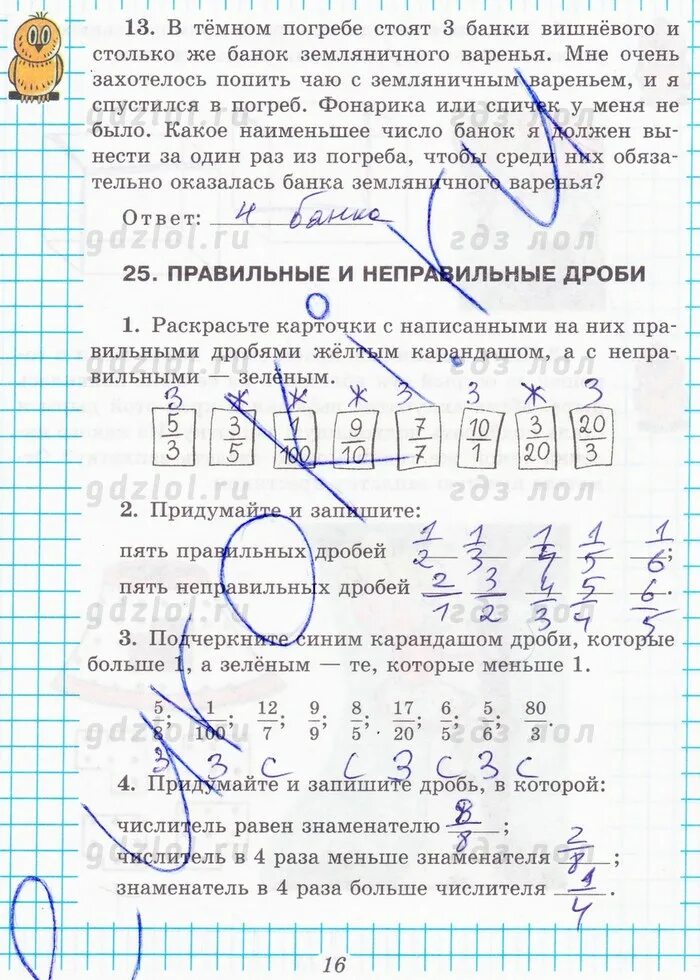 13. В тёмном погребе стоят 3 банки вишнёвого и
столько же банок земляничного варенья. Мне очень
захотелось попить чаю с земляничным вареньем, и я
спустился в погреб. Фонарика или спичек у меня не
было. Какое наименьшее число банок я должен вы-
нести за один раз из погреба, чтобы среди них обяза-
тельно оказалась банка земляничного варенья?
Ответ: 4 банка
gdzlol.ru гдз лол
25. ПРАВИЛЬНЫЕ И НЕПРАВИЛЬНЫЕ ДРОБИ
1. Раскрасьте карточки с написанными на них пра-
вильными дробями жёлтым карандашом, а с непра-
вильными зелёным.
З Ж Ж Ж З З Ж З
5/3 3/5 1/100 9/10 7/7 10/1 3/20 20/3
gdzlol.ru гдз лол
2. Придумайте и запишите:
пять правильных дробей 1/2 1/3 1/4 1/5 1/6;
пять неправильных дробей 2/1 3/2 4/3 5/4 6/5.
gdzlol.ru гдз лол
3. Подчеркните синим карандашом дроби, которые
больше 1, а зелёным — те, которые меньше 1.
5/8; 1/100; 12/7; 9/9; 8/5; 17/20; 6/5; 5/6; 80/3.
gdzlol.ru гдз лол
З З С С З С З С
4. Придумайте и запишите дробь, в которой:
числитель равен знаменателю 8/8;
числитель в 4 раза меньше знаменателя 2/8;
знаменатель в 4 раза больше числителя 1/4.
16